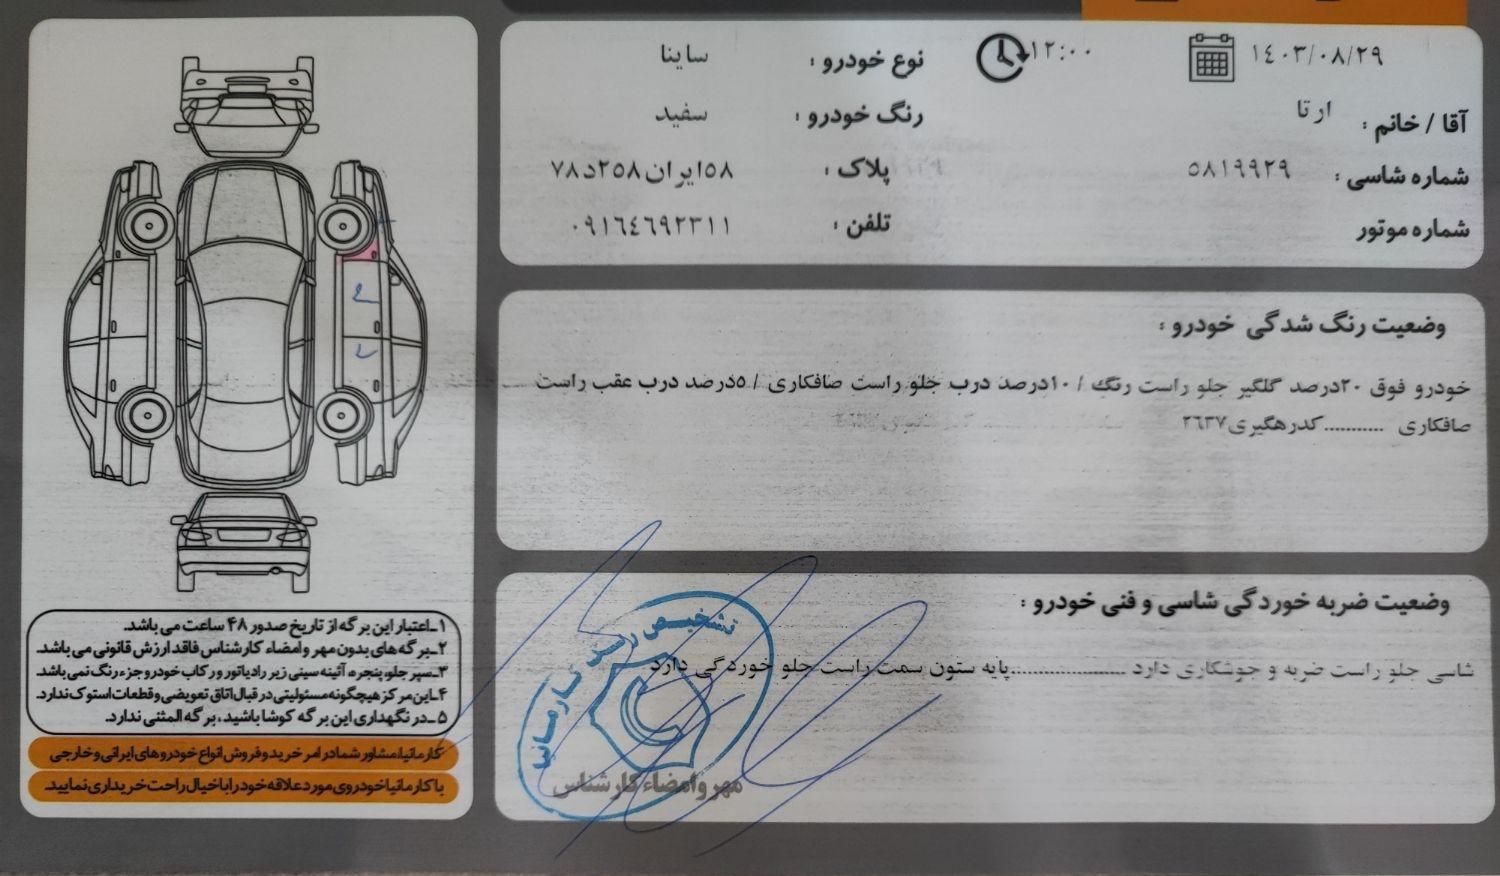 ۱۴۰۳/۰۸/۲۹
۱۲:۰۰
نوع خودرو : ساینا
آقا / خانم : ارتا
رنگ خودرو : سفید
شماره شاسی : ۵۸۱۹۹۲۹
پلاک : ۵۸ایران۲۵۸د۷۸
شماره موتور
تلفن : ۰۹۱۶۴۶۹۲۳۱۱
وضعیت رنگ شدگی خودرو :
خودرو فوق ۲۰درصد گلگیر جلو راست رنگ / ۱۰درصد درب جلو راست صافکاری / ۵درصد درب عقب راست
صافکاری ...........کدرهگیری۲۶۳۷
وضعیت ضربه خوردگی شاسی و فنی خودرو :
شاسی جلو راست ضربه و جوشکاری دارد ......................پایه ستون سمت راست جلو خوردگی دارد
تشخیص رنگ کارمانیا
مهر و امضاء کارشناس
۱ـ اعتبار این برگه از تاریخ صدور ۴۸ ساعت می باشد.
۲ـ برگه های بدون مهر و امضاء کارشناس فاقد ارزش قانونی می باشد.
۳ـ سپر جلو، پنجره، آئینه سینی زیر رادیاتور و رکاب خودرو جزء رنگ نمی باشد.
۴ـ این مرکز هیچگونه مسئولیتی در قبال اتاق تعویضی و قطعات استوک ندارد.
۵ـ در نگهداری این برگه کوشا باشید، برگه المثنی ندارد.
کارمانیا، مشاور شما در امر خرید و فروش انواع خودروهای ایرانی و خارجی
با کارمانیا خودروی مورد علاقه خود را با خیال راحت خریداری نمایید.